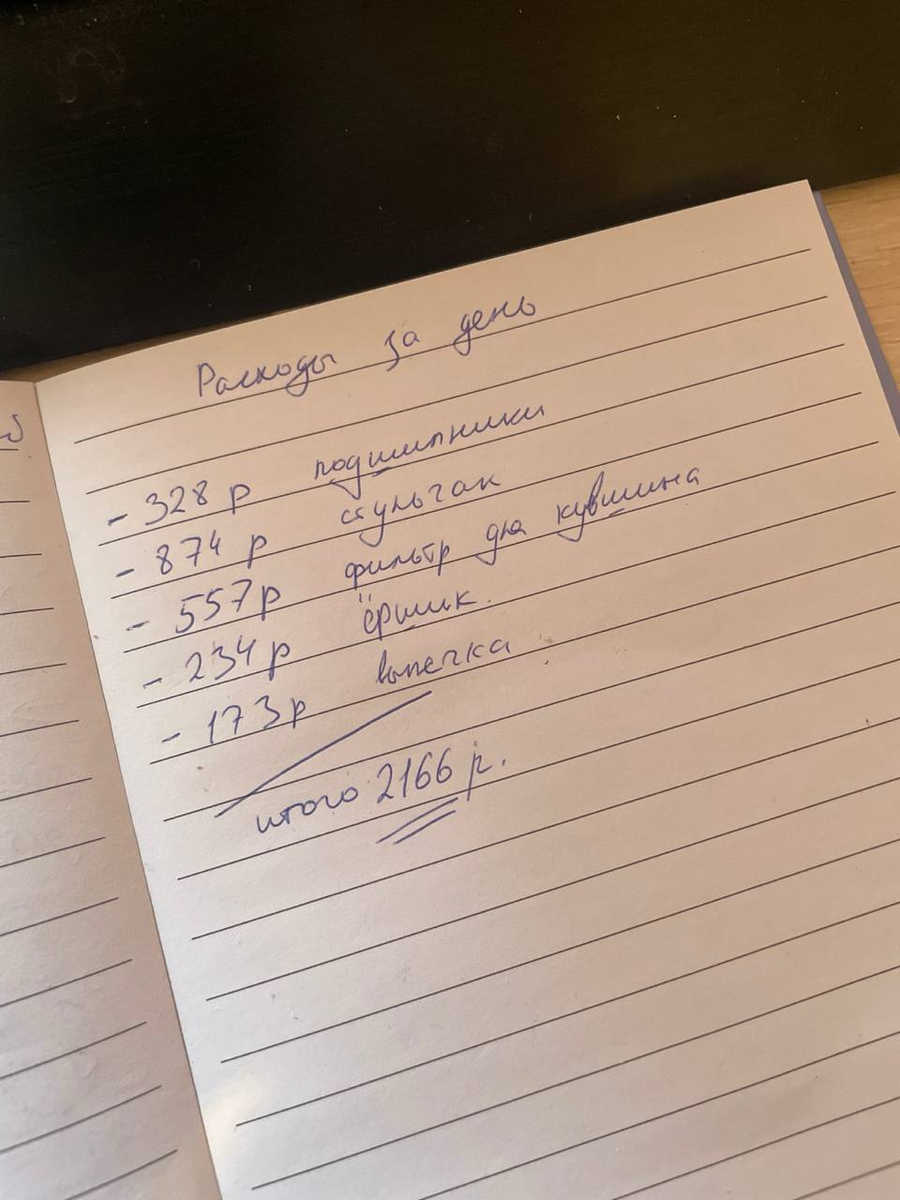 Расходы за день
- 328 р подшипники
- 874 р стульчак
- 557р фильтр для кувшина
- 234 р ёршик.
- 173р выпечка
итого 2166 р.